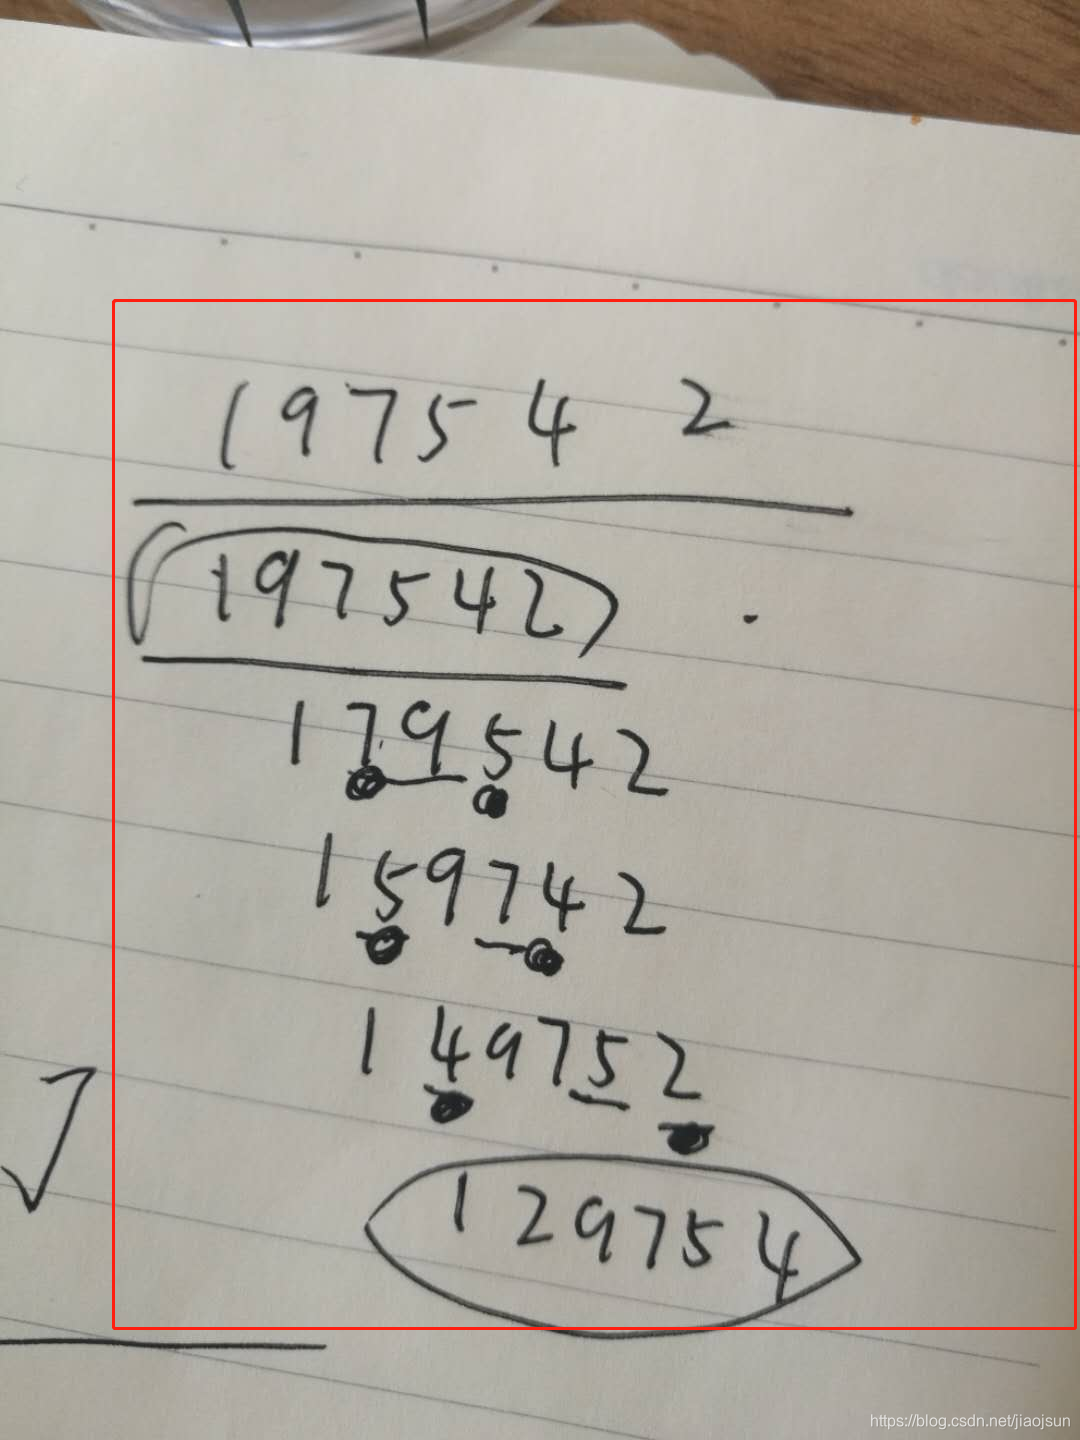 197542
197542
179542
159742
149752
129754
https://blog.csdn.net/jiaojsun